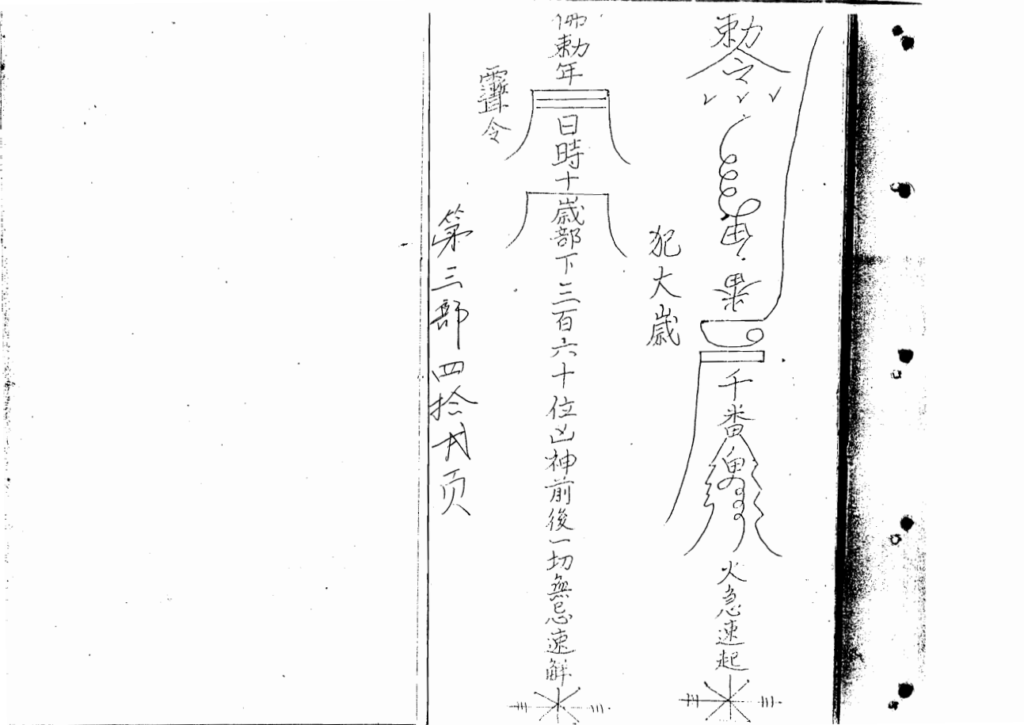 勅令
千番
火急速起
犯大歲
佛勅年
日時十歲部下三百六十位凶神前後一切無忌速解
令
第三部四拾頁